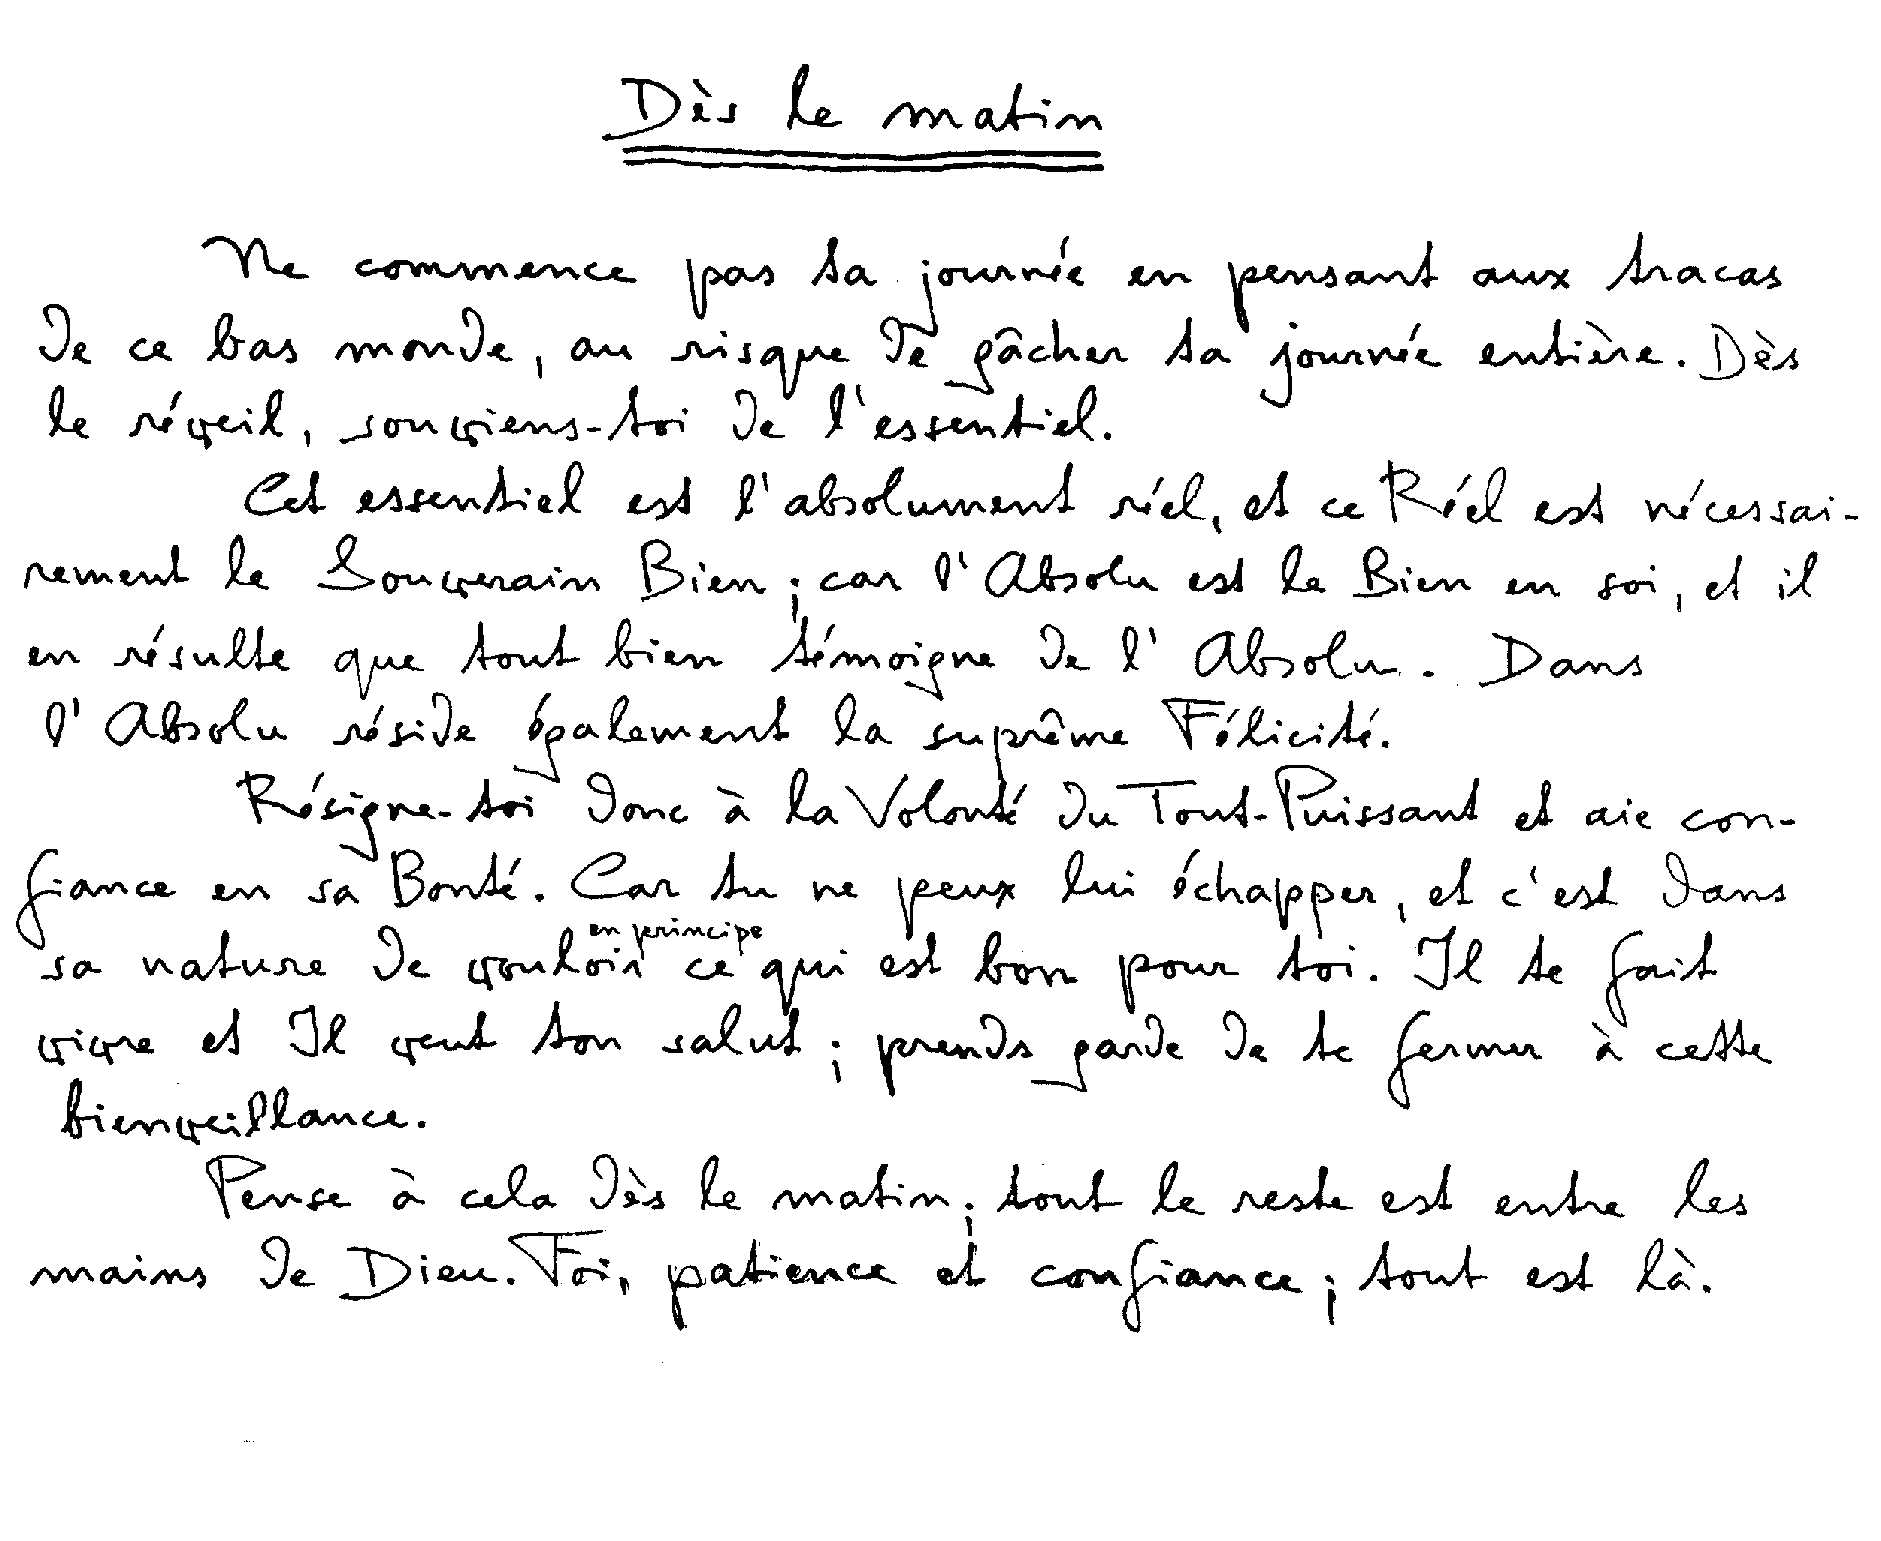 Dès le matin
Ne commence pas ta journée en pensant aux tracas
de ce bas monde, au risque de gâcher ta journée entière. Dès
le réveil, souviens-toi de l'essentiel.
Cet essentiel est l'absolument réel, et ce Réel est nécessai-
rement le Souverain Bien ; car l'Absolu est le Bien en soi, et il
en résulte que tout bien témoigne de l'Absolu. Dans
l'Absolu réside également la suprême Félicité.
Résigne-toi donc à la Volonté du Tout-Puissant et aie con-
fiance en sa Bonté. Car tu ne peux lui échapper, et c'est dans
en principe
sa nature de vouloir ce qui est bon pour toi. Il te fait
vivre et Il veut ton salut ; prends garde de te fermer à cette
bienveillance.
Pense à cela dès le matin ; tout le reste est entre les
mains de Dieu. Foi, patience et confiance ; tout est là.